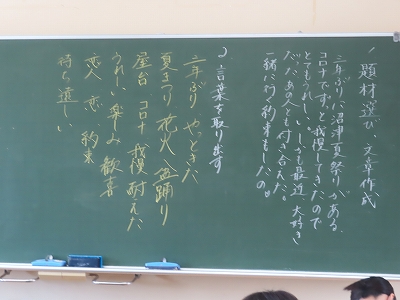 1 題材選び、文章作成
三年ぶりに沼津夏祭りがある。
コロナでずっと我慢してきたので
とてもうれしい。しかも最近、大好き
だったあの人とも付き合えた。
一緒に行く約束もしたの。
2 言葉を取り出す
三年ぶり やっときた
夏まつり 花火 盆踊り
屋台 コロナ 我慢 耐えた
うれしい 楽しみ 歓喜
恋人 恋 約束
待ち遠しい